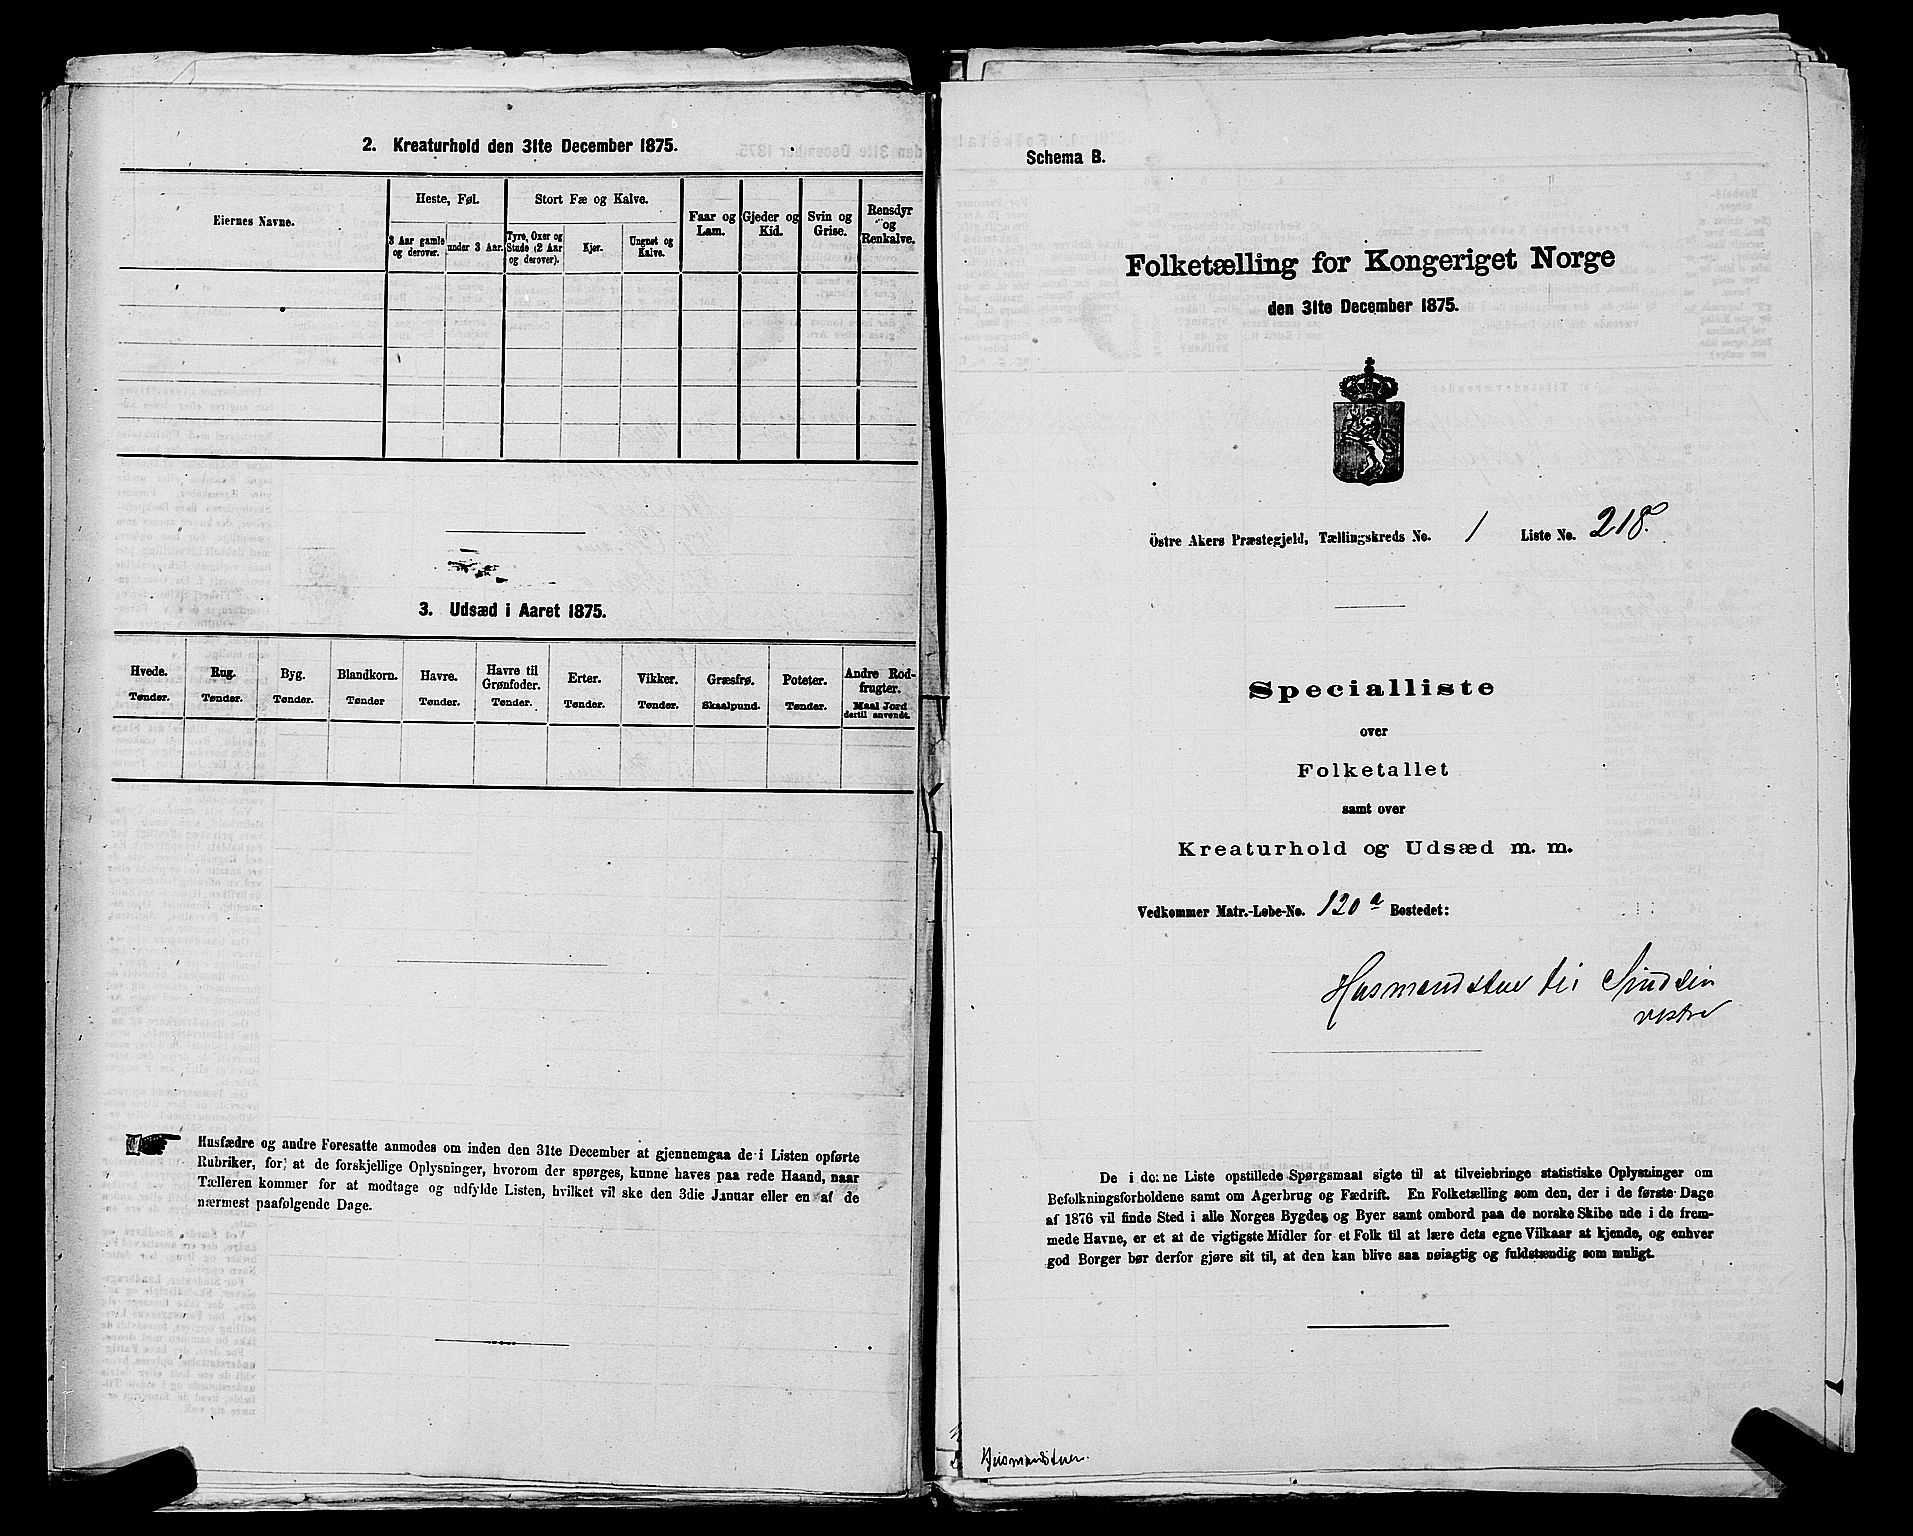 2. Kreaturhold den 31te December 1875.
Eiernes Navne.
Heste, Føl.
Stort Fæ og Kalve.
Faar og
Lam.
Gjeder og
Kid.
Svin og
Grise.
Rensdyr
og
Renkalve.
3 Aar gamle
og derover.
under 3 Aar.
Tyre, Oxer og
Stude (2 Aar
og derover).
Kjør.
Ungnøt og
Kalve.
3. Udsæd i Aaret 1875.
Hvede.
Tønder.
Rug.
Tønder.
Byg.
Tønder.
Blandkorn.
Tønder
Havre.
Tønder.
Havre til
Grønfoder.
Tønder.
Erter.
Tønder.
Vikker.
Tønder.
Græsfrø.
Skaalpund.
Poteter.
Tønder.
Andre Rod-
frugter.
Maal Jord
dertil anvendt.
Husfædre og andre Foresatte anmodes om inden den 31te December at gjennemgaa de i Listen opførte
Rubriker, for at de forskjellige Oplysninger, hvorom der spørges, kunne haves paa rede Haand, naar
Tælleren kommer for at modtage og udfylde Listen, hvilket vil ske den 3die Januar eller en af de
nærmest paafølgende Dage.
Schema B.
Folketælling for Kongeriget Norge
den 31te December 1875.
Östre Akers Præstegjeld, Tællingskreds No. 1 Liste No. 218.
Specialliste
over
Folketallet
samt over
Kreaturhold og Udsæd m. m.
Vedkommer Matr.-Løbe-No. 120a Bostedet:
Husmandstue til Sindsen
vestre
De i denne Liste opstillede Spørgsmaal sigte til at tilveiebringe statistiske Oplysninger om
Befolkningsforholdene samt om Agerbrug og Fædrift. En Folketælling som den, der i de første Dage
af 1876 vil finde Sted i alle Norges Bygder og Byer samt ombord paa de norske Skibe ude i de frem-
mede Havne, er et af de vigtigste Midler for et Folk til at lære dets egne Vilkaar at kjende, og enhver
god Borger bør derfor gjøre sit til, at den kan blive saa nøiagtig og fuldstændig som muligt.
Husmandstuen.